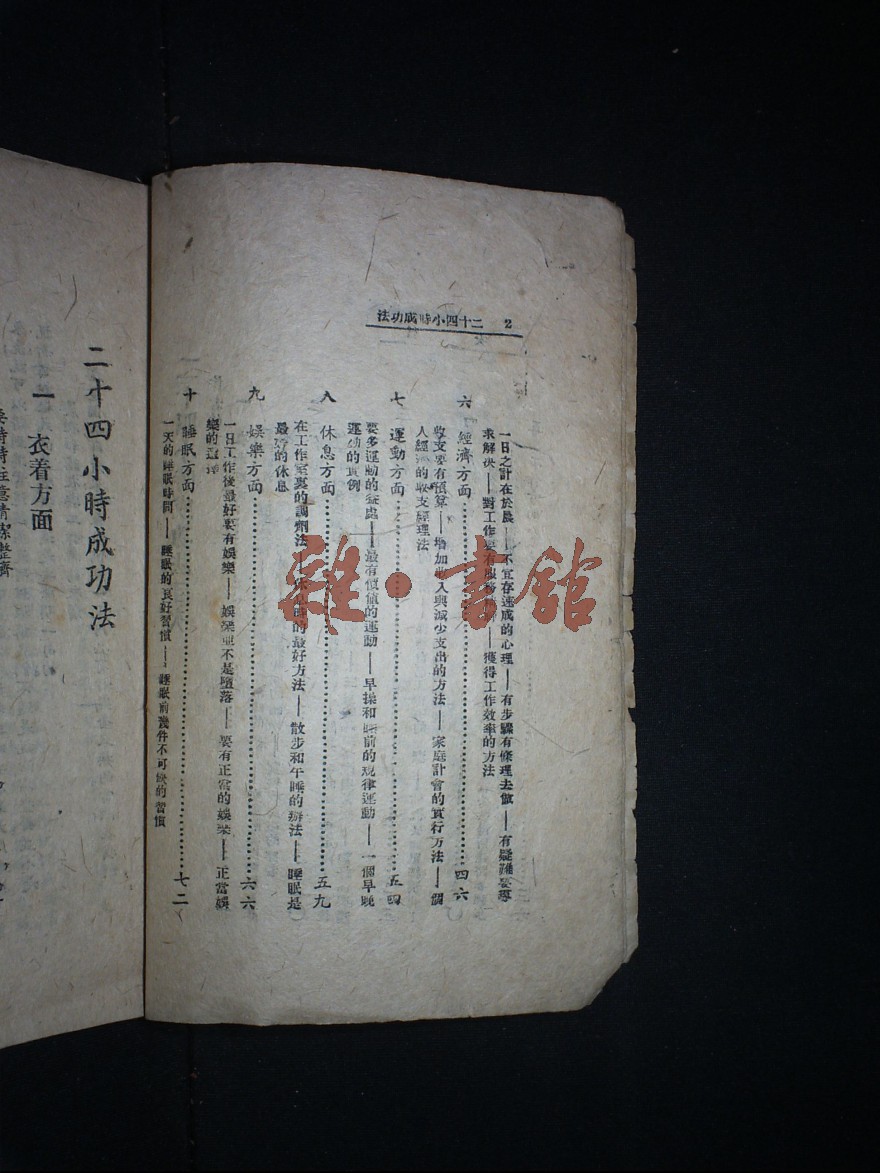 2 二十四小時成功法
一日之計在於晨——不宜存速成的心理——有步驟有條理去做——有疑難要尋
求解決——對工作要有服務——獲得工作效率的方法
六 經濟方面……四六
收支要有預算——增加收入與減少支出的方法——家庭計會的實行方法——個
人經濟的收支經理法
七 運動方面……五四
要多運動的益處——最有價值的運動——早操和睡前的規律運動——一個早晚
運動的實例
八 休息方面……五九
在工作室裏的調劑法——休息時的最好方法——散步和午睡的辦法——睡眠是
最好的休息
九 娛樂方面……六六
一日工作後最好要有娛樂——娛樂並不是墮落——要有正當的娛樂——正當娛
樂的選擇
十 睡眠方面……七二
一天的睡眠時間——睡眠的良好習慣——睡眠前幾件不可做的習慣
二十四小時成功法
一 衣着方面
要時時注意清潔整齊
雜·書館